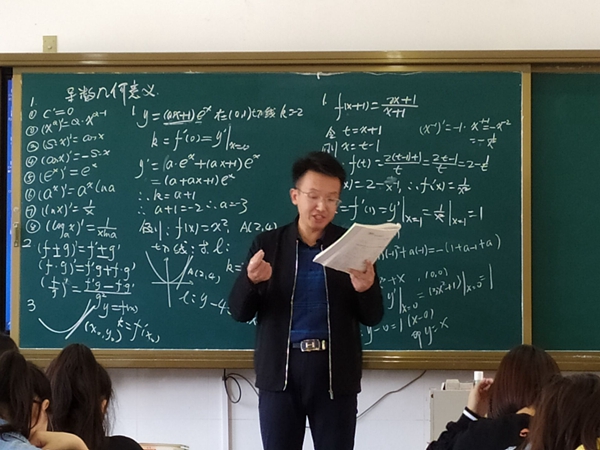 导数几何意义.
1.
① C'=0
② (xᵅ)'=α·xᵅ⁻¹
③ (sinx)'=cosx
④ (cosx)'=-sinx
⑤ (eˣ)'=eˣ
⑥ (aˣ)'=aˣlna
⑦ (lnx)'=1/x
⑧ (logₐx)'=1/(xlna)
2
(f±g)'=f'±g'
(f·g)'=f'g+f·g'
3
y=f(x)
(x₀,y₀) k=f'(x₀)
y=(ax+1)eˣ 在(0,1)切线 k=-2
k=f'(0)=y'|x=0
y'=a·eˣ+(ax+1)eˣ
=(a+ax+1)eˣ
∴k=a+1
∴a+1=-2 ∴a=-3
f(x)=x², A(2,4)
切线:求l:
A(2,4)
l:y-4
f(x+1)=(2x+1)/(x+1)
令 t=x+1
则 x=t-1
f(t)=(2(t-1)+1)/t=(2t-1)/t=2-1/t
=2-x⁻¹, ∴f'(x)=1/x²
f'(1)=y'|x=1=1/x²|x=1=1
(x⁻¹)'=-1·x⁻¹⁻¹=-x⁻²
=-1/x²
(0,0)
=(3x²+1)|x=0=1
y-0=1(x-0)
即y=x